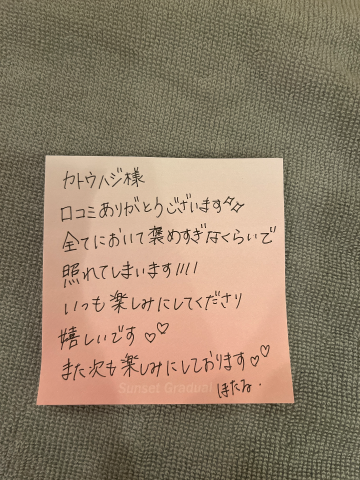 カトウハジ様
口コミありがとうございます✧✧
全てにおいて褒めすぎなくらいで
照れてしまいます////
いつも楽しみにしてくださり
嬉しいです♡♡
また次も楽しみにしております♡♡
Sunset Gradua
ほたる.